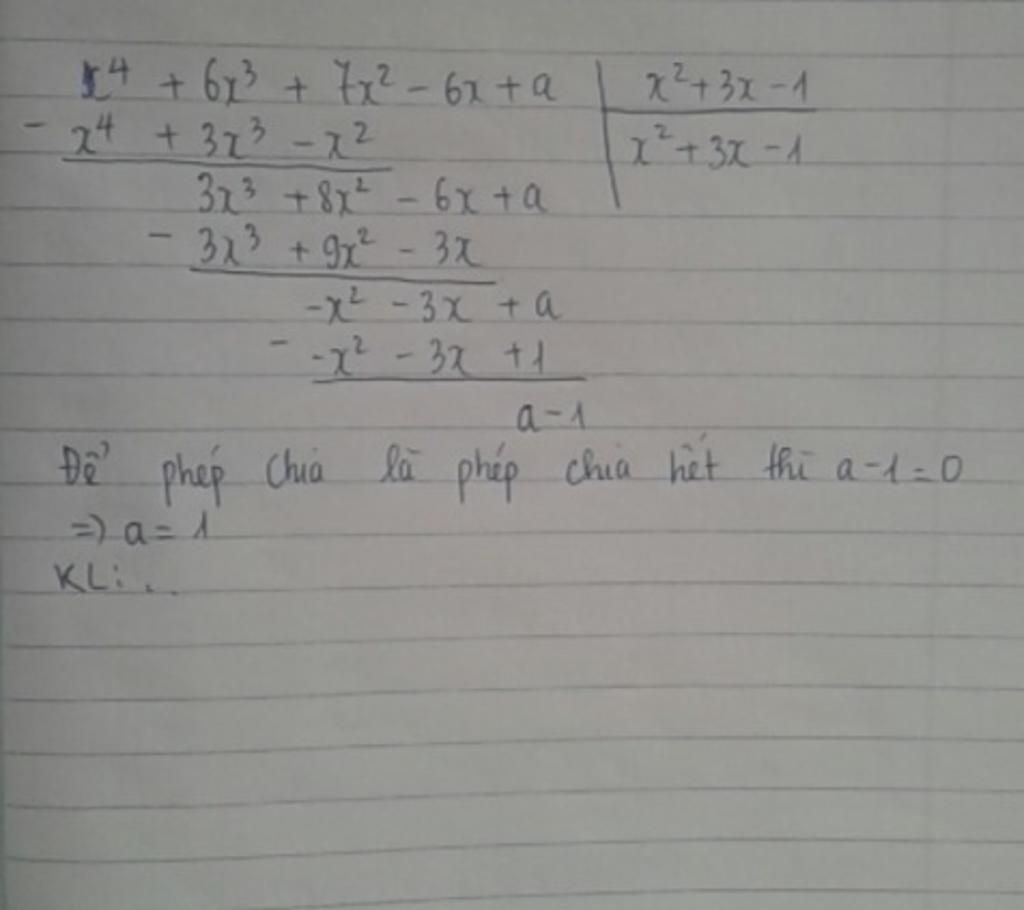 x⁴ + 6x³ + 7x² - 6x + a | x² + 3x - 1
- x⁴ + 3x³ - x² | x² + 3x - 1
3x³ + 8x² - 6x + a
- 3x³ + 9x² - 3x
-x² - 3x + a
- -x² - 3x + 1
a - 1
Để phép chia là phép chia hết thì a - 1 = 0
=> a = 1
KL: ..